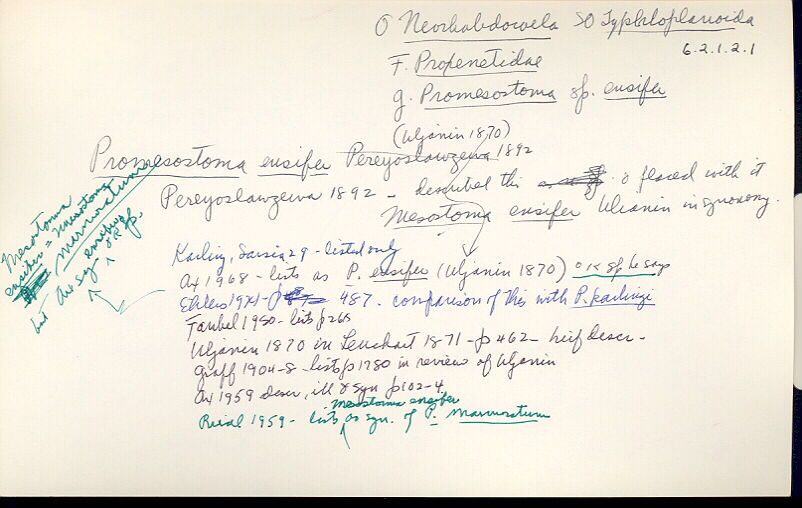 O Neorhabdocoela SO Typhloplanoida
6.2.1.2.1
F. Propenetidae
g. Promesostoma sp. ensifer
(Uljanin 1870)
Promesostoma ensifer Pereyoslawzewa 1892
Pereyoslawzewa 1892 - described this & placed with it
Mesotoma ensifer Ulianin in synonomy.
Mesostoma
ensifer = Mesostoma
marmoratum
but Ax sy ensifer
OK sp.
Karling, Sarsia 29 - listed only
Ax 1968 - lists as P. ensifer (Uljanin 1870) OK sp he says
Ehlers 1974 - p 487. comparison of this with P. karlingi
Taubel 1950 - lists p 265
Uljanin 1870 in Leuckart 1871 - p 462 - brief descr -
Graff 1904-8 - lists p 1780 in review of Uljanin
Ax 1959 descr, ill & syn p 102-4
Mesostoma ensifer
Riedl 1959 - lists as syn. of P. marmoratum